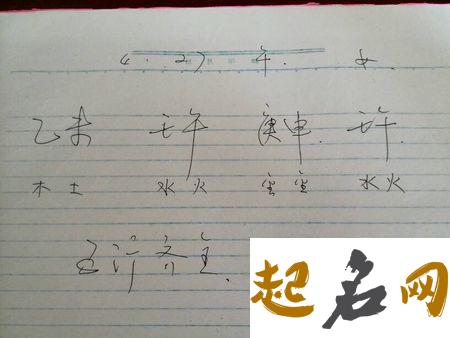 4.27 午. 女
乙未 壬午 庚申. 壬午.
木土 水火 金金 水火
五行齐全.
起名网